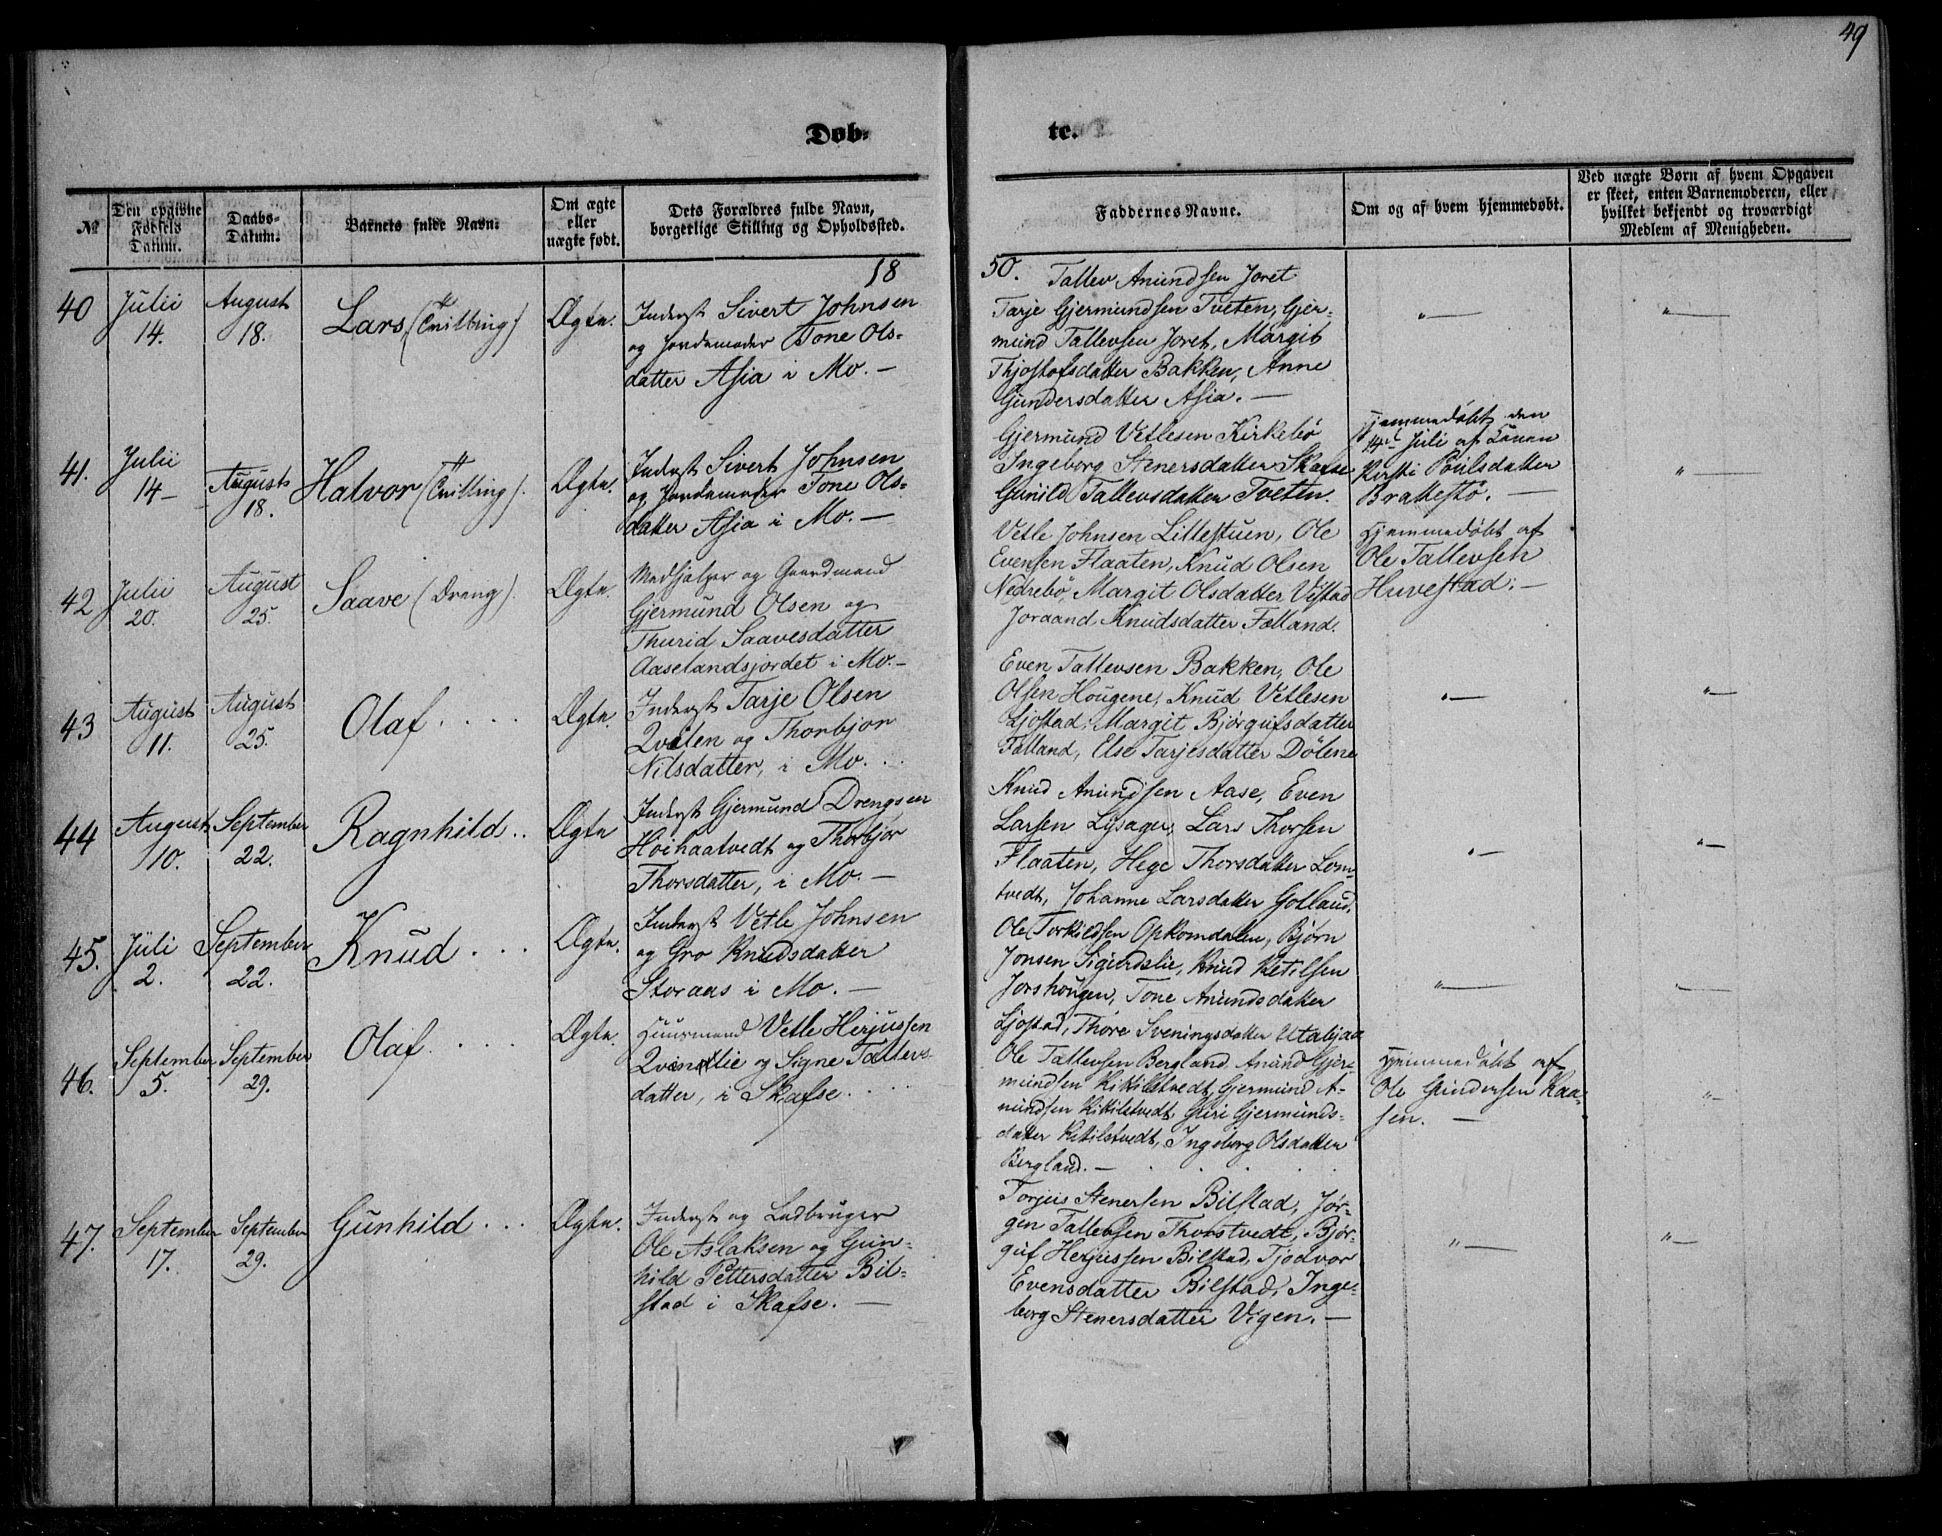 49
Døb-
te.
№
Den opgivne
Fødsels
Datum.
Daabs-
Datum.
Barnets fulde Navn.
Om ægte
eller
uægte født.
Dets Forældres fulde Navn,
borgerlige Stilling og Opholdssted.
Faddernes Navne.
Om og af hvem hjemmedøbt.
Ved uægte Børn af hvem Opgaven
er skeet, enten Barnemoderen, eller
hvilket bekjendt og troværdigt
Medlem af Menigheden.
18
50.
40
Julii
14.
August
18.
Lars, (Tvilling)
Ægte.
Inderst Sivert Johnsen
og Jordemoder Tone Ols-
datter Asia i Mo. —
Tallev Anundsen Joret
Tarje Gjermundsen Tveten, Gjer-
mund Tallevsen Joret, Margit
Thjostofsdatter Bakken, Anne
Gundersdatter Asia. —
" —
" —
41.
Julii
14 —
August
18.
Halvor (Tvilling).
Ægte.
Inderst Sivert Johnsen
og Jordemoder Tone Ols-
datter Asia i Mo. —
Gjermund Vetlesen Kirkebø
Ingeborg Stenersdatter Skafse
Gunild Tallevsdatter Tveten.
Hjemmedøbt den
14de Juli af Konen
Kirsti Poulsdatter
Brattestø. —
" —
42
Julii
20.
August
25.
Saave (Dreng).
Ægte.
Medhjælper og Gaardmand
Gjermund Olsen og
Thurid Saavesdatter
Aaselandsjordet i Mo. —
Vetle Johnsen Littestuen, Ole
Evensen Flaaten, Knud Olsen
Nedrebø, Margit Olsdatter Vistad
Joraand Knudsdatter Falland.
Hjemmedøbt af
Ole Tallevsen
Huvestad. —
43
August
11.
August
25.
Olaf. . . .
Ægte.
Inderst Tarje Olsen
Qvålen og Thorbjør
Nilsdatter, i Mo. . .
Even Tallevsen Bakken, Ole
Olsen Hougene, Knud Vetlesen
Ljostad, Margit Bjørgufsdatter
Falland, Else Tarjesdatter Dølene
" —
" —
44
August
10.
September
22.
Ragnhild . .
Ægte
Inderst Gjermund Drengsen
Høihaatvedt og Thorbjør
Thorsdatter, i Mo. —
Knud Anundsen Aase, Even
Larsen Lysager, Lars Thorsen
Flaaten, Hege Thorsdatter Lom-
tvedt, Johanne Larsdatter Golland.
" —
" —
45.
Juli
2.
September
22.
Knud . . .
Ægte.
Inderst Vetle Johnsen
og Gro Knudsdatter
Storaas i Mo. —
Ole Torkildsen Opkomdalen, Bjørn
Jonsen Sigurdslie, Knud Ketilsen
Jorshougen, Tone Anundsdatter
Ljostad, Thore Sveningsdatter Utabjaa
" —
" —
46.
September
5.
September
29.
Olaf. . . .
Ægte.
Huusmand Vetle Herjussen
Qvindlie og Signe Tallevs-
datter, i Skafse. . .
Ole Tallevsen Bergland, Anund Gjer-
mundsen Kitilstvedt, Gjermund A-
nundsen Kitilstvedt, Guri Gjermunds-
datter Ketilstvedt, Ingeborg Olsdatter
Bergland. —
Hjemmedøbt af
Ole Gundersen Kaa-
sen. —
" —
47.
September
17.
September
29.
Gunhild . . .
Ægte.
Inderst og Ladbruger
Ole Aslaksen og Gun-
hild Pettersdatter Bil-
stad i Skafse. —
Torjus Stenersen Bilstad, Jør-
gen Tallevsen Thorstvedt, Bjør-
guf Herjussen Bilstad, Tjodvor
Evensdatter Bilstad, Inge-
borg Stenersdatter Vigen. —
" —
" —